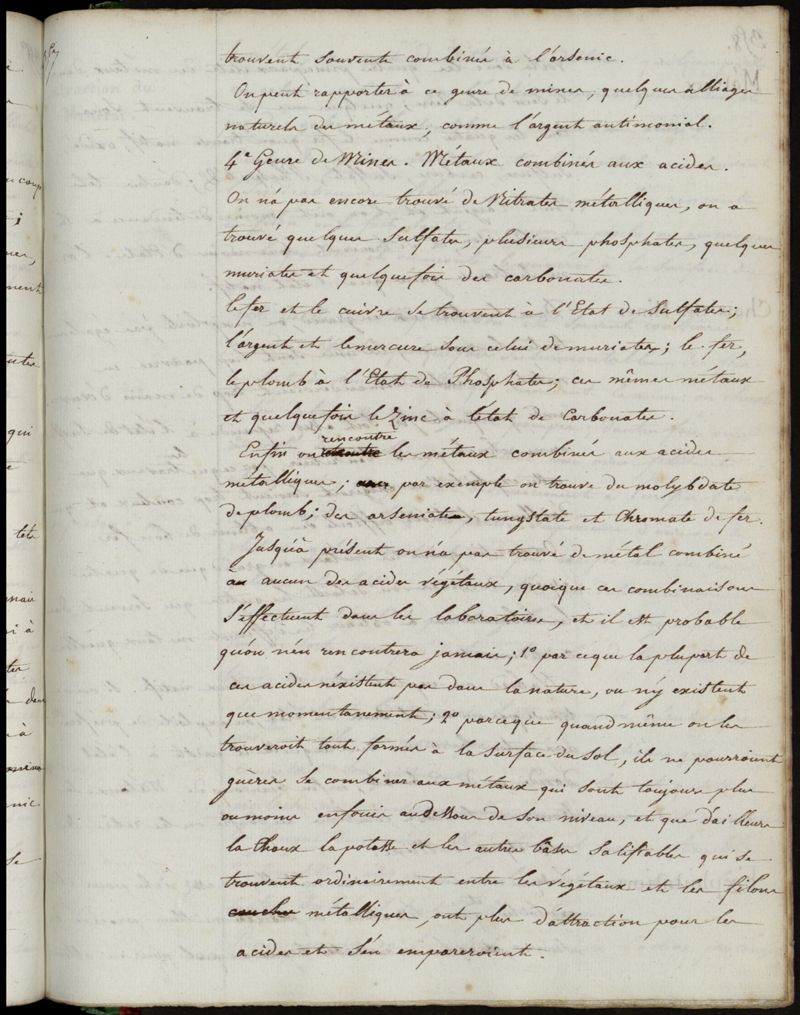 trouvent souvent combinés à l'arsenic.
On peut rapporter à ce genre de mines, quelques alliages
naturels des métaux, comme l'argent antimonial.
4e Genre de Mines. Métaux combinés aux acides.
On n'a pas encore trouvé de Nitrates métalliques, on a
trouvé quelques sulfates, plusieurs phosphates, quelques
muriates et quelquefois des carbonates.
le fer et le cuivre se trouvent à l'Etat de Sulfates;
l'argent et le mercure sous celui de muriates; le fer,
le plomb à l'Etat de Phosphates; ces mêmes métaux
et quelquefois le Zinc à l'état de Carbonates.
Enfin on rencontre les métaux combinés aux acides
métalliques; par exemple on trouve du molybdate
de plomb; des arseniates, tungstate et Chromate de fer.
Jusqu'à présent on n'a pas trouvé de métal combiné
à aucun des acides végétaux, quoique ces combinaisons
s'effectuent dans les laboratoires, et il est probable
qu'on n'en rencontrera jamais; 1o par ce que la plupart de
ces acides n'existent pas dans la nature, ou n'y existent
que momentanement; 2o parceque quand même on les
trouveroit tout formés à la surface du sol, ils ne pourroient
guères se combiner aux métaux qui sont toujours plus
ou moins enfouis au dessous de son niveau, et que d'ailleurs
la Chaux la potasse et les autres bâses salifiables qui se
trouvent ordinairement entre les végétaux et les filons
métalliques, ont plus d'attraction pour les
acides et s'en empareroient.